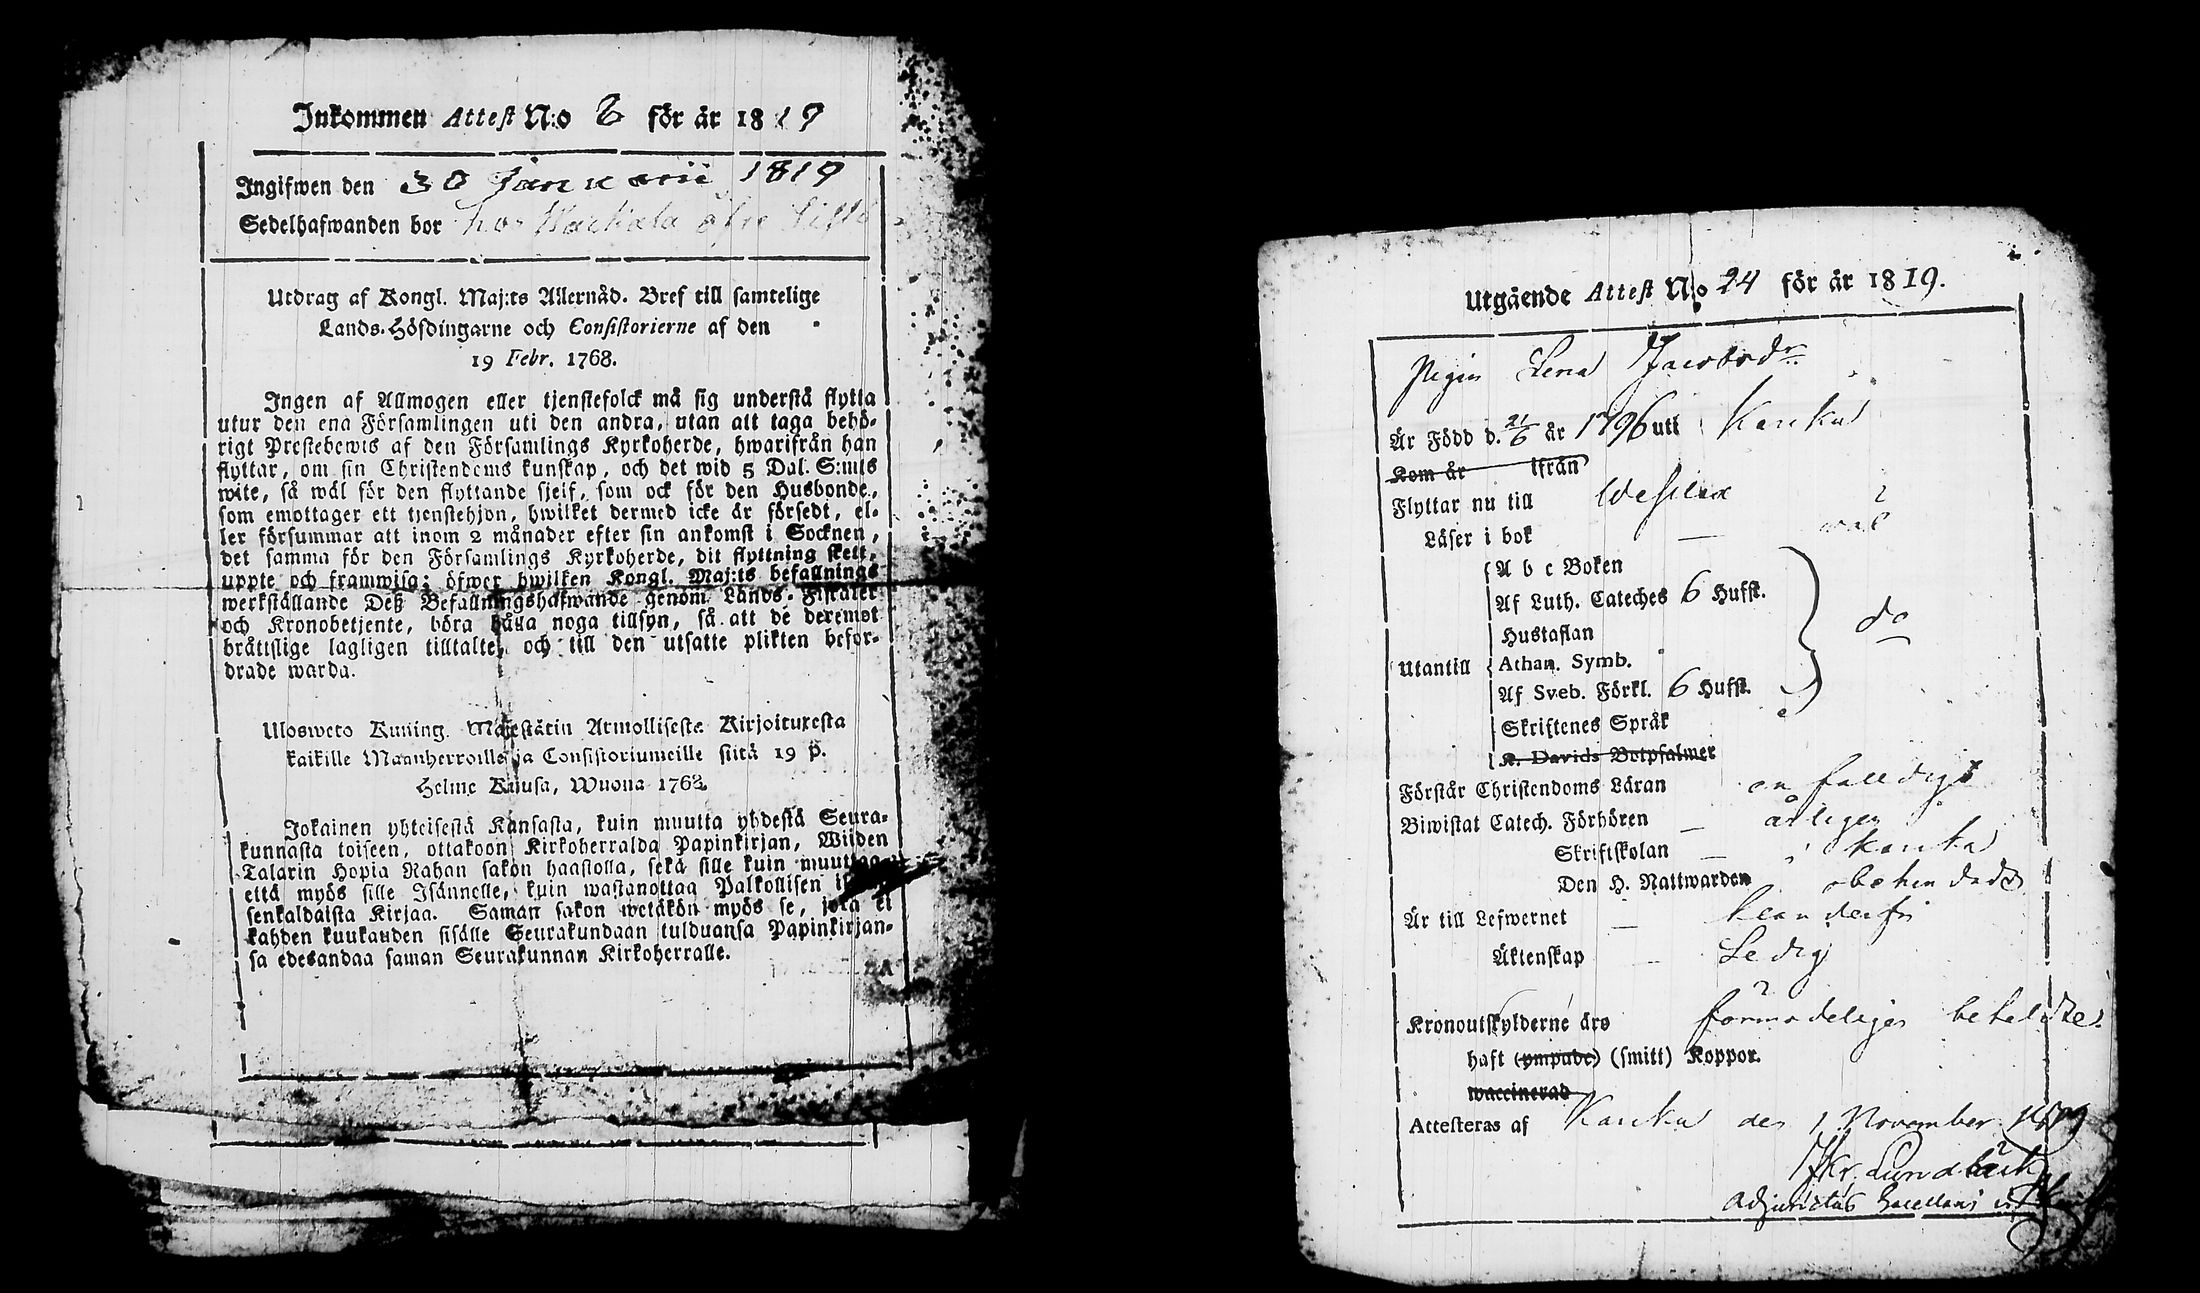 Inkommen Attest N:o 8 för år 1819
Ingifwen den 30 Januarii 1819
Sedelhafwanden bor hos
Utdrag af Kongl. Maj:ts Allernåd. Bref till samtelige
Lands-Höfdingarne och Consistorierne af den
19 Febr. 1768.
Ingen af Allmogen eller tjenstefolck må sig understå flytta
utur den ena Församlingen uti den andra, utan att taga behö-
rigt Prestebewis af den Församlings Kyrkoherde, hwarifrån han
flyttar, om sin Christendoms kunskap, och det wid 5 Dal. S:mts
wite, så wäl för den flyttande sjelf, som ock för den Husbonde,
som emottager ett tjenstehjon, hwilket dermed icke är försedt, el-
ler försummar att inom 2 månader efter sin ankomst i Socknen,
det samma för den Församlings Kyrkoherde, dit flyttning skett,
uppte och framwisa; öfwer hwilken Kongl. Maj:ts befallnings
werkställande Deß Befallningshafwande genom Lands-Fiskaler
och Kronobetjente, böra hålla noga tillsyn, så att de deremot
bråttslige lagligen tilltalte, och till den utsatte plikten befor-
drade warda.
Ulosweto Kuning. Majestätin Armollisesta Kirjoituxesta
kaikille Maanherroille ja Consistoriumeille siitä 19 p.
Helme Kuusa, Wuona 1768.
Jokainen yhteisestä Kansasta, kuin muutta yhdestä Seura-
kunnasta toiseen, ottakoon Kirkoherralda Papinkirjan, Wiiden
Talarin Hopia Rahan sakon haastolla, sekä sille kuin muuttaa
että myös sille Isännelle, kuin wastanottaa Palkollisen
senkaldaista Kirjaa. Saman sakon wetäkön myös se, jota ei
kahden kuukauden sisälle Seurakundaan tulduansa Papinkirjan-
sa edesandaa saman Seurakunnan Kirkoherralle.
Utgående Attest N:o 24 för år 1819.
Pigan Lena Jacobsdr.
Är Född d. 21/6 år 1796 uti Kauhu
Kom år ifrån
Flyttar nu till
Läser i bok — wäl
A b c Boken
Af Luth. Cateches 6 Hufst.
Hustaflan
Utantill Athan. Symb. do
Af Sveb. Förkl. 6 Hufst.
Skriftenes Språk
K. Davids Botpsalmer
Förstår Christendoms Läran enfaldigt
Biwistat Catech. Förhören — årligen
Skriftskolan —
Den H. Nattwarden obehindrad
Är till Lefwernet — klanderfri
Äktenskap — Ledig
Kronoutskylderne äro förmodeligen betalte.
haft (ympade) (smitt) Koppor.
waccinerad
Attesteras af den 1 November 1819
Lundbäck
Adjunctus